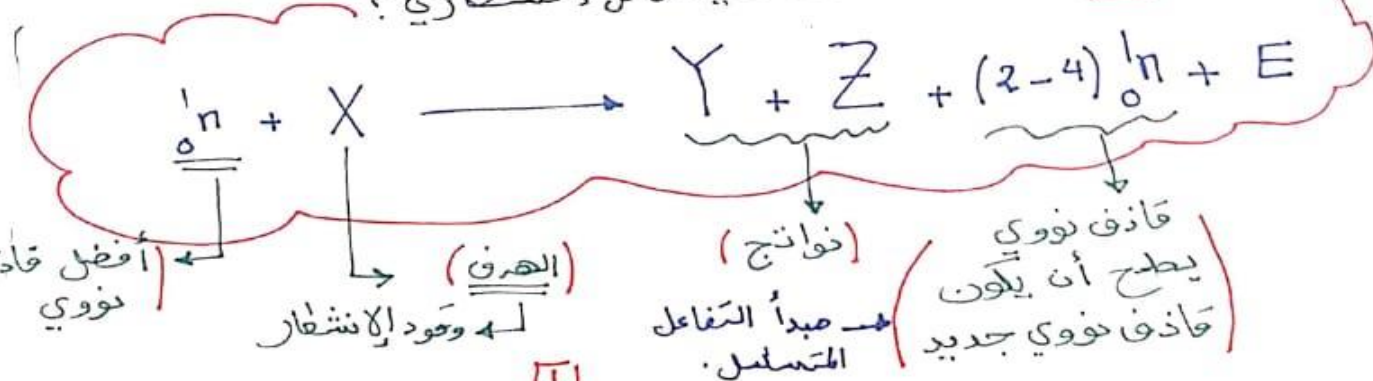 الإنشطاري :
¹₀n + X ⟶ Y + Z + (2-4) ¹₀n + E
(أفضل
نووي
(الهدف)
وقود الإنشطار
(نواتج)
مبدأ التفاعل
المتسلسل.
(قاذف نووي
يصلح أن يكون
قاذف نووي جديد)
1